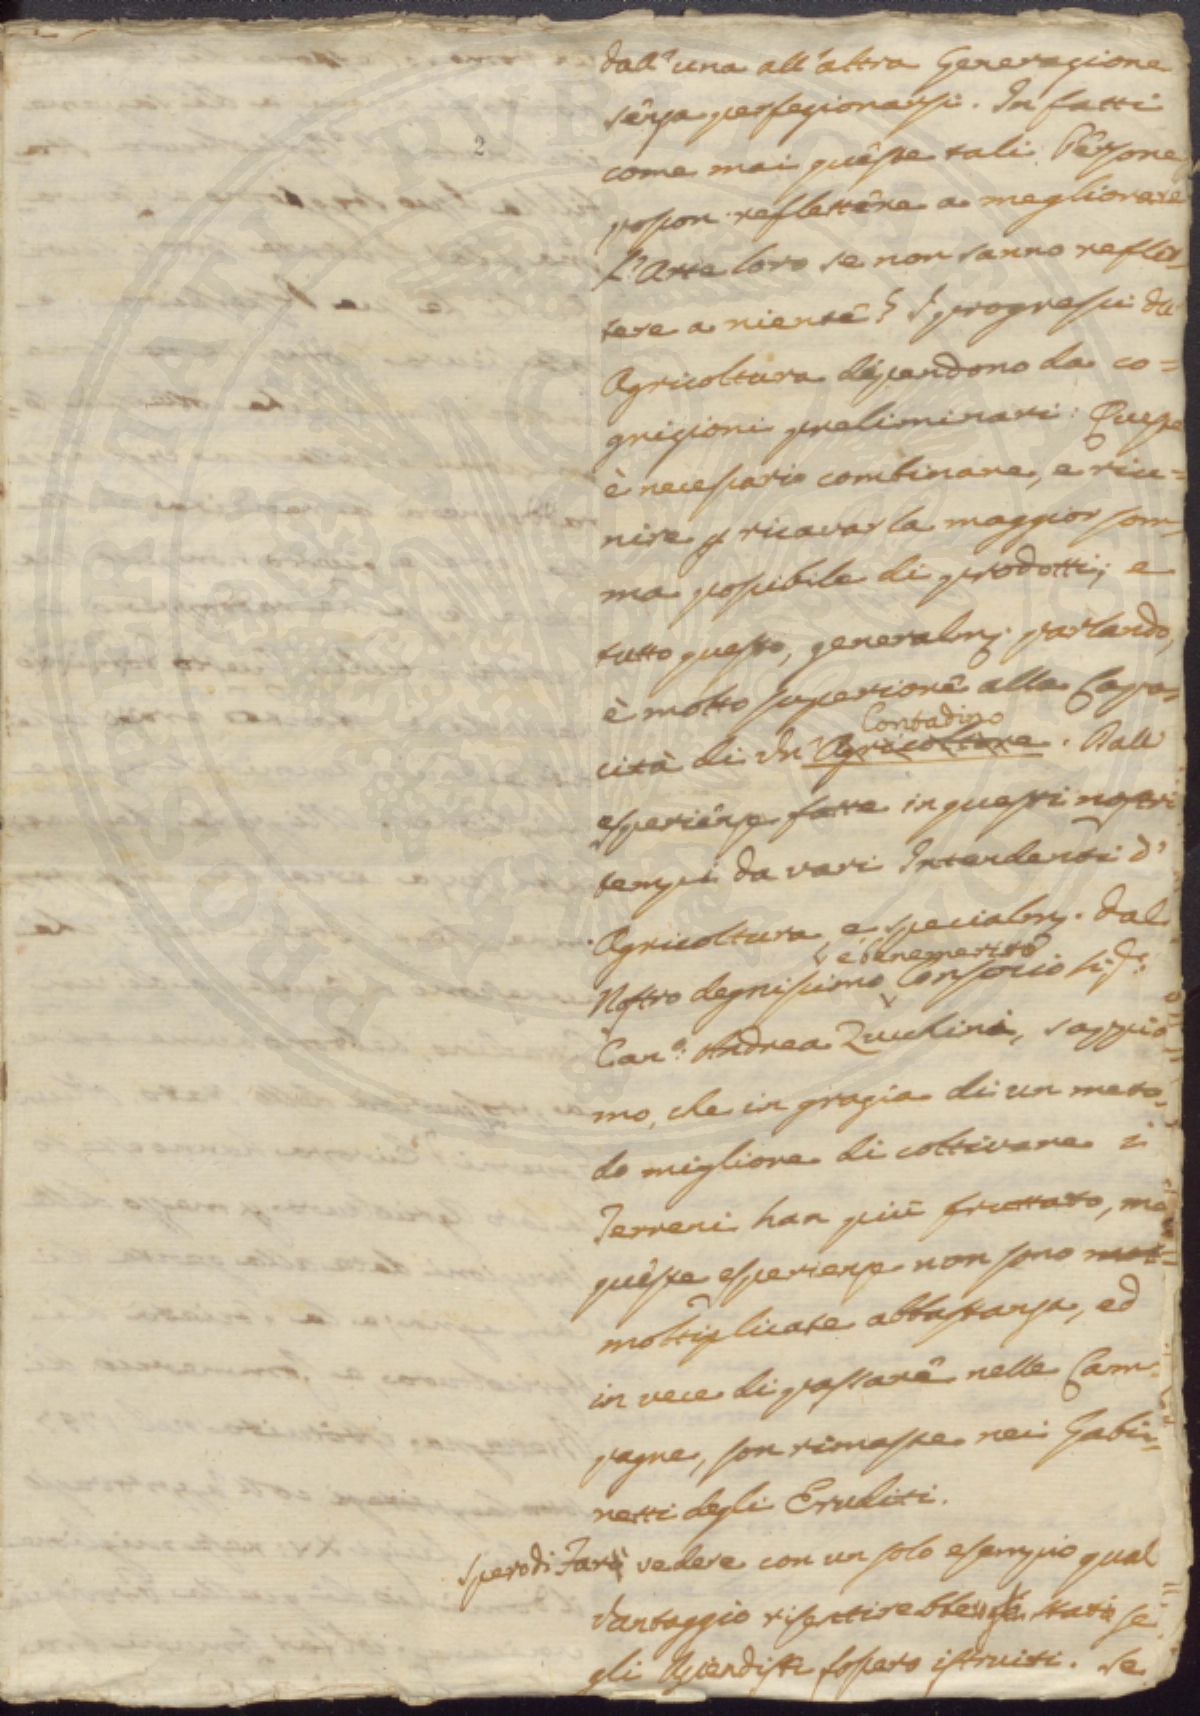 2
dall'una all'altra Generazione
senza perfezionarsi. In fatti
come mai queste tali Persone
posson reflettere a megliorare
l'Arte loro se non sanno reflet-
tere a niente? I progressi di
Agricoltura dipendono da co=
gnizioni preliminari: Queste
è necessario combinare, e riu=
nire p ricavar la maggior som-
ma possibile di prodotti; e
tutto questo, generalm. parlando,
è molto superiore alla Capa=
Contadino
cità di un' Agricoltore. Dall'
esperienze fatte in questi nostri
tempi da vari Intendenti d'
Agricoltura, e specialm. dal
e benemerito
Nostro degnissimo Consocio Sig.
Can.° Andrea Zucchini, sappia
mo, che in grazia di un meto-
do migliore di coltivare i
Terreni han più fruttato, ma
queste esperienze non sono
moltiplicate abbastanza, ed
in vece di passare nelle Cam-
pagne, son rimaste nei Gabi-
netti degli Eruditi.
Spero di Far vedere con un solo esempio qual
Vantaggio risentirebbe stati se
gli Aziendisti fossero istruiti. Se